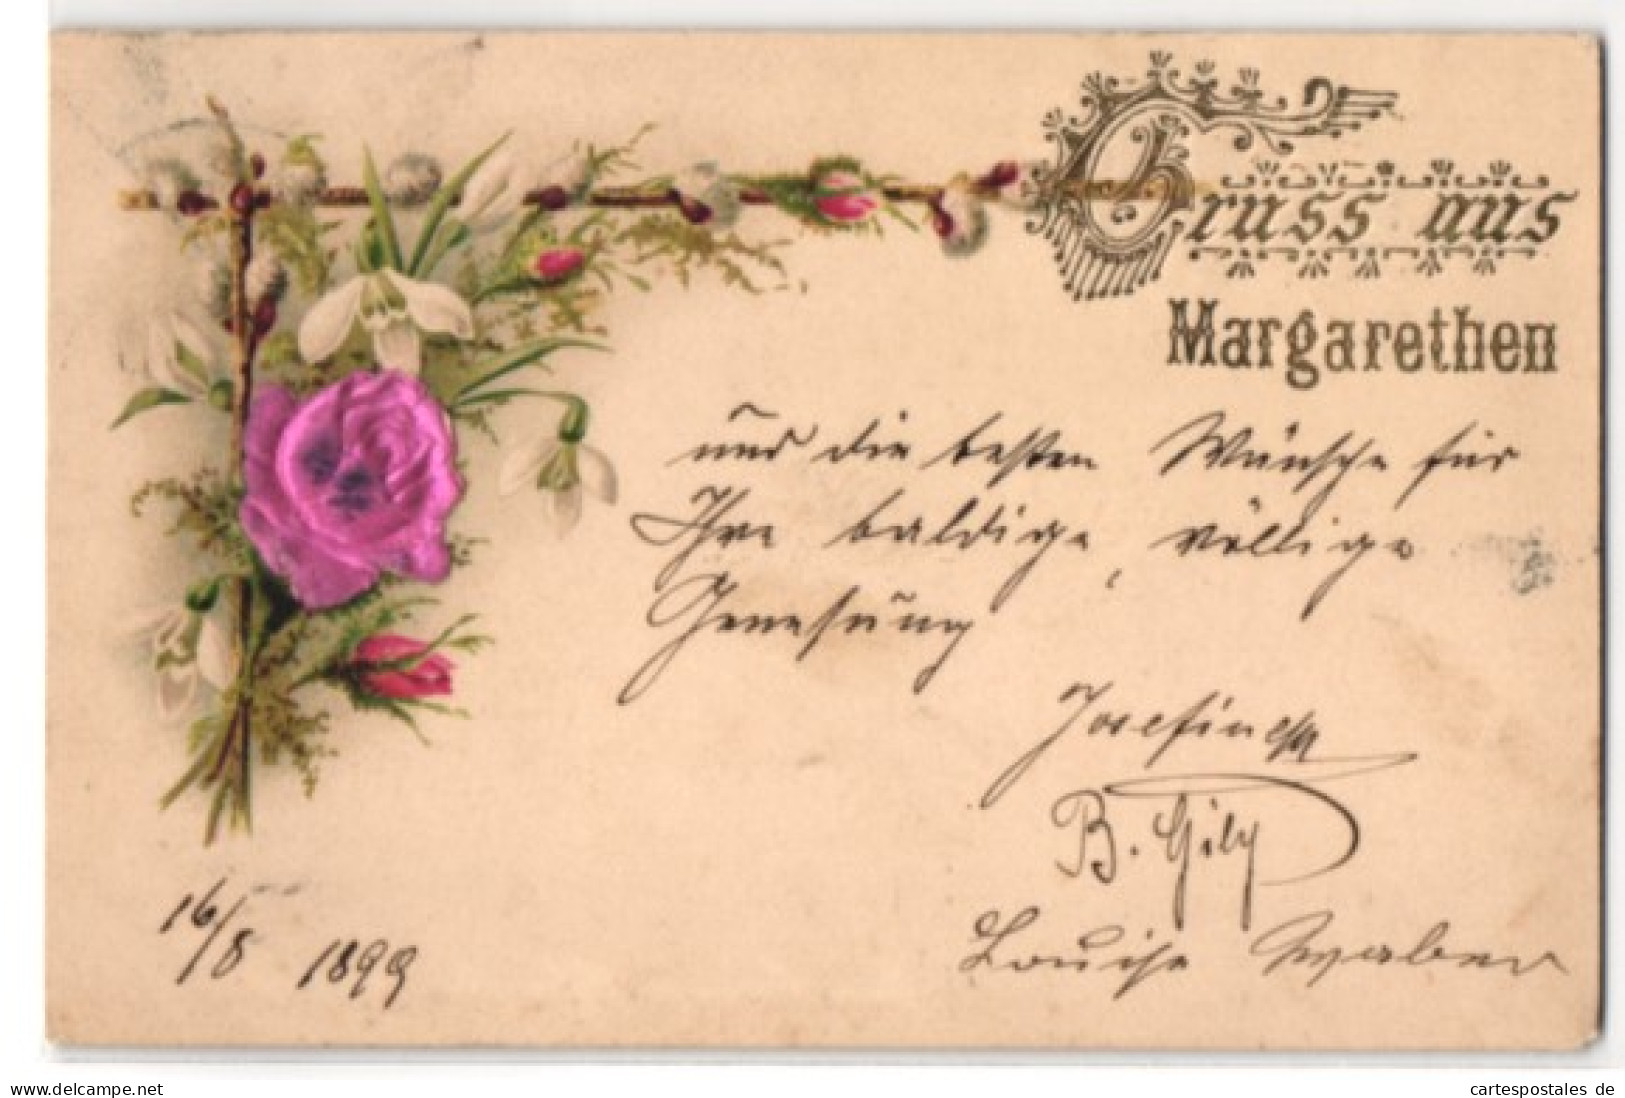 Gruss aus
Margarethen
und die besten Wünsche für
Ihre baldige, völlige
Genesung
Josefine
B.
Louise
16/8 1899
www.delcampe.net
cartespostales de